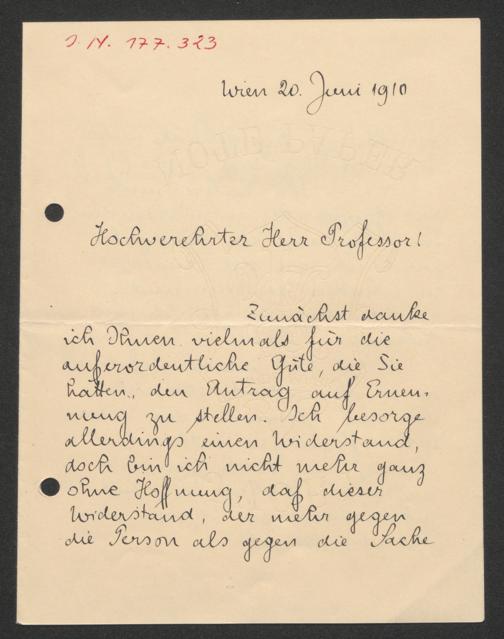 J.N. 177.323
Wien 20. Juni 1910
Hochverehrter Herr Professor!
Zunächst danke
ich Ihnen vielmals für die
außerordentliche Güte, die Sie
hatten, den Antrag auf Ernen-
nung zu stellen. Ich besorge
allerdings einen Widerstand,
doch bin ich nicht mehr ganz
ohne Hoffnung, daß dieser
Widerstand, der mehr gegen
die Person als gegen die Sache